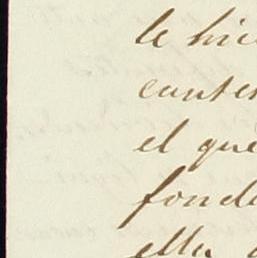 le hic
conten
el que
fonde
ella